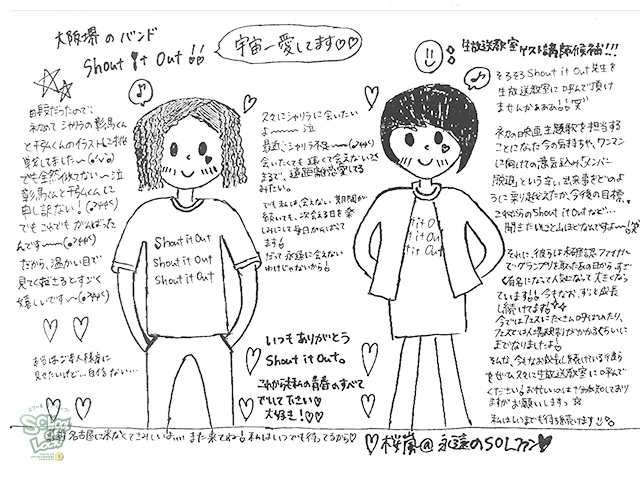 大阪堺のバンド
Shout it Out!!
宇宙一愛してます♡♡
生放送教室ゲスト講師候補!!!
そろそろShout it Out先生を
生放送教室に呼んで頂け
ませんかぁぁぁ!!
初の映画主題歌を担当する
ことになった今の気持ちや、ワンマン
に向けての意気込み、メンバー
脱退という辛い出来事をどのよ
うに乗り越えたか、今後の目標、
これからのShout it Outなど...
聞きたいこと山ほどなんですよ〜
それに、彼らは未確認ファイナル
でグランプリを取ったあの日から、すごく
有名になって人気になって大きくなっ
ています!!今もなお、ずっと成長
し続けてます!
今ではフェスにたくさん呼ばれたり、
フェスでは入場規制がかかるくらいに
までなりましたよ!
そんな、今もなお成長し続けている彼ら
をぜひ久々に生放送教室に呼んで
ください!お忙しいのは十分承知しており
ますがお願いしますっ☆
私はいつまでも待ち続けます!!
自習だったので、
初めてシャリラの彰馬くん
でも全然似てない〜泣
申し訳ない!
でもこれでもがんばった
んです〜
だから、温かい目で
見て下さるとすごく
嬉しいです〜
久々にシャリラに会いたい
よ〜〜〜泣
最近シャリラ不足〜
会いたくても遠くて会えない
まるで、遠距離恋愛してる
みたい。
でも私は、会えない期間が
続いても、次会える日を楽
しみにして毎日がんばってま
す!
だって永遠に会えない
わけじゃないから!
Shout it Out
Shout it Out
Shout it Out
it Out
it Out
it Out
いつもありがとう
Shout it Out。
これからも私の青春のすべて
でいて下さい♡
大好き!♡♡
SCHOOL OF LOCK!
名古屋に来なくてさみしいよ... また来てね!私はいつでも待ってるから♡
♡桜嵐@永遠のSOLファン♥